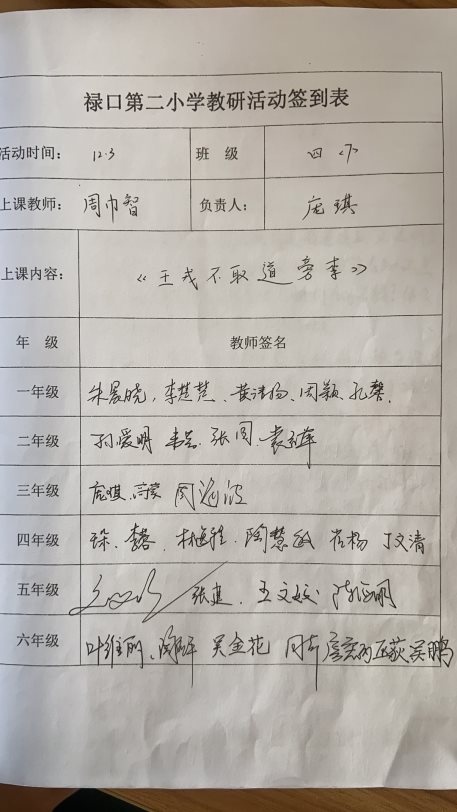 禄口第二小学教研活动签到表
活动时间： 12.3 班 级 四〈7〉
上课教师： 周巾智 负责人： 庞琪
上课内容： 《王戎不取道旁李》
年 级 教师签名
一年级 朱晨晓，李楚楚、黄诗扬、周颖、孔馨.
二年级 孙爱明 韦芸、张图、袁玉萍
三年级 庞琪、
四年级 陶慧敏 肖杨 丁文清
五年级 张建、王文姣、陈海鹏
六年级 叶维丽、吴金花 吴鹏